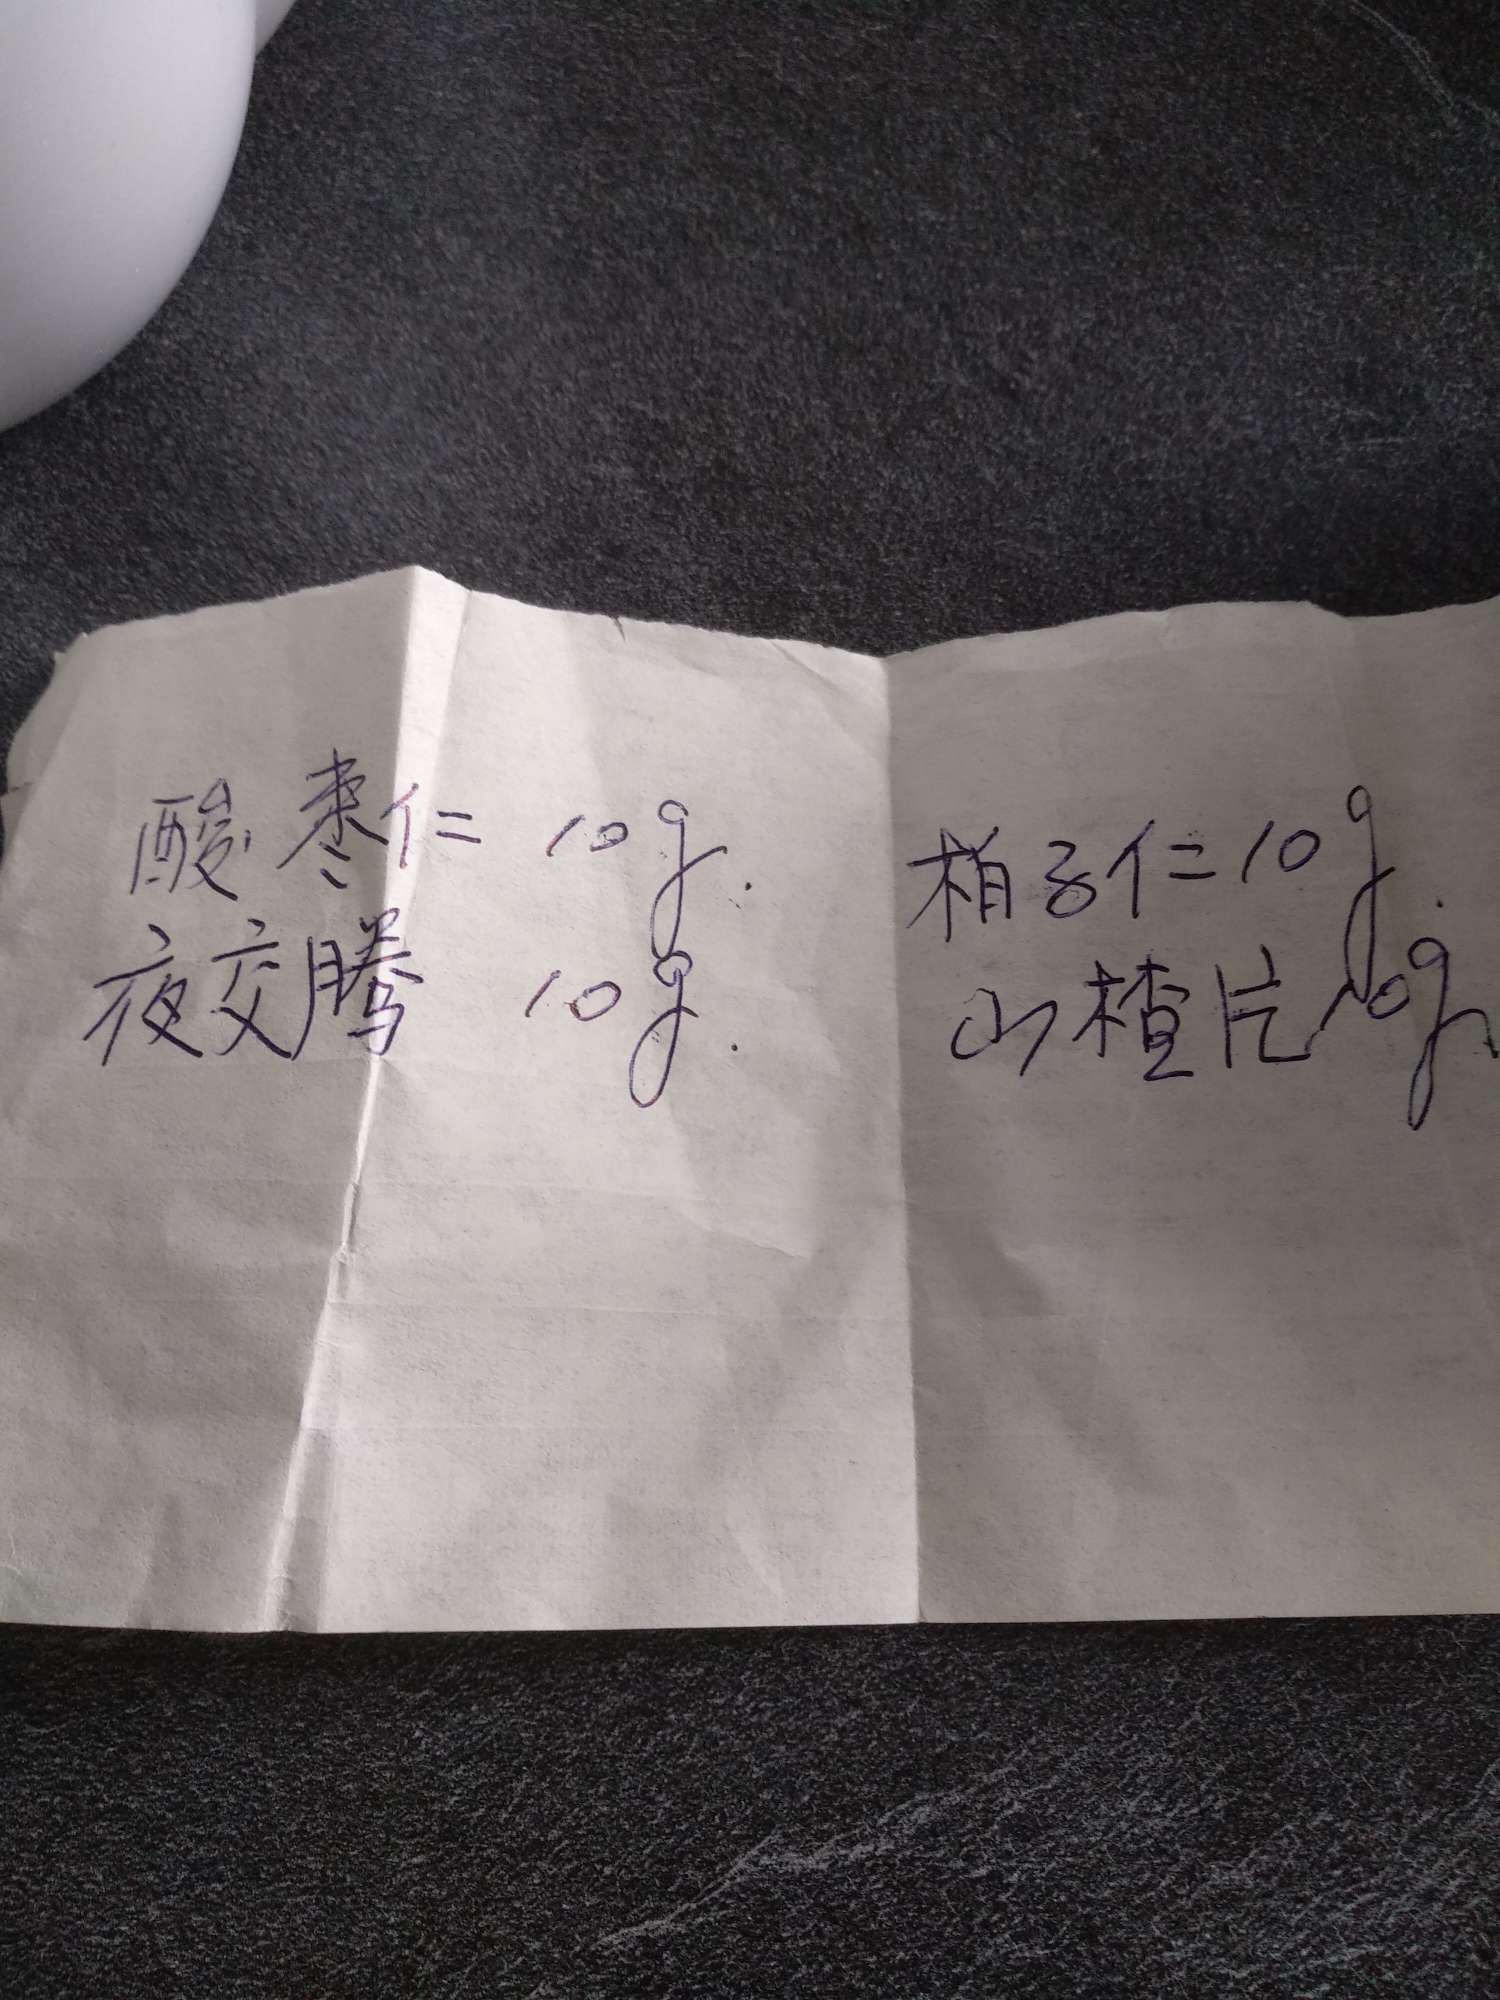 酸枣仁 10g. 柏子仁 10g.
夜交腾 10g. 山楂片 10g.